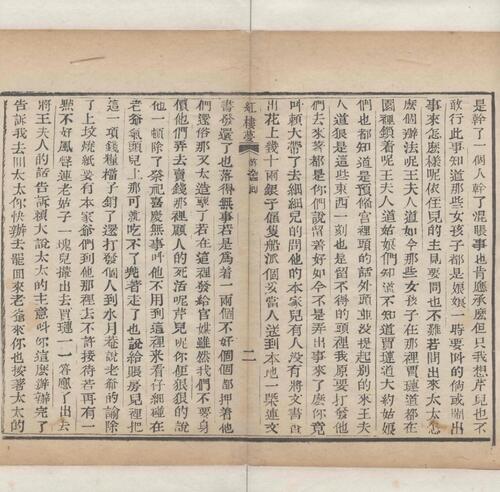 是幹了一個人幹了混賬事也肯應承麽但只我想芹兒也不
敢行此事知道那些女孩子都是娘娘一時要叫的倘或鬧出
事來怎麽樣呢依侄兒的主見要問也不難若問出來太太怎
麽個辦法呢王夫人道如今那些女孩子在那裡賈璉道都在
園裡鎖着呢王夫人道姑娘們知道不知道賈璉道大約姑娘
們也都知道是預俻宮裡頭的話外頭並没提起别的來王夫
人道狠是這些東西一刻也是留不得的頭裡我原要打發他
們去來着都是你們說留着好如今不是弄出事來了麽你竟
叫賴大帶了去細細兒的問他的本家兒有人没有將文書查
出花上幾十兩銀子僱隻船派個妥當人送到本地一槩連文
紅樓夢
第
囬
二
書發還了也落得無事若是爲着一兩個不好個個都押着他
們還俗那又太造孽了若在這裡發給官媒雖然我們不要身
價他們弄去賣錢那裡顧人的死活呢芹兒呢你便狠狠的說
他一頓除了祭祀喜慶無事叫他不用到這裡來看仔細碰在
老爺氣頭兒上那可就吃不了兜着走了也說給賬房兒裡把
這一項錢糧檔子銷了還打發個人到水月菴說老爺的諭除
了上墳燒紙要有本家爺們到他那裡去不許接待若再有一
㸃不好風聲連老姑子一塊兒攆出去賈璉一一答應了出去
將王夫人的話告訴賴大說太太的主意叫你這麽辦辦完了
告訴我去囘太太你快辦去罷囬來老爺來你也按着太太的